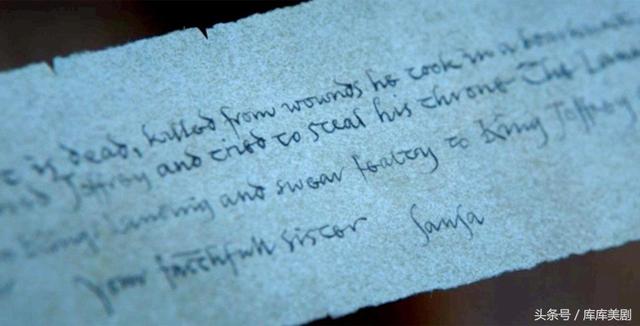 is dead, killed from wounds he took in a boar hunt
Joffrey and tried to steal his throne. The
King's Landing and swear fealty to King Joffrey
your faithfull sister Sansa
头条号 / 库库美剧